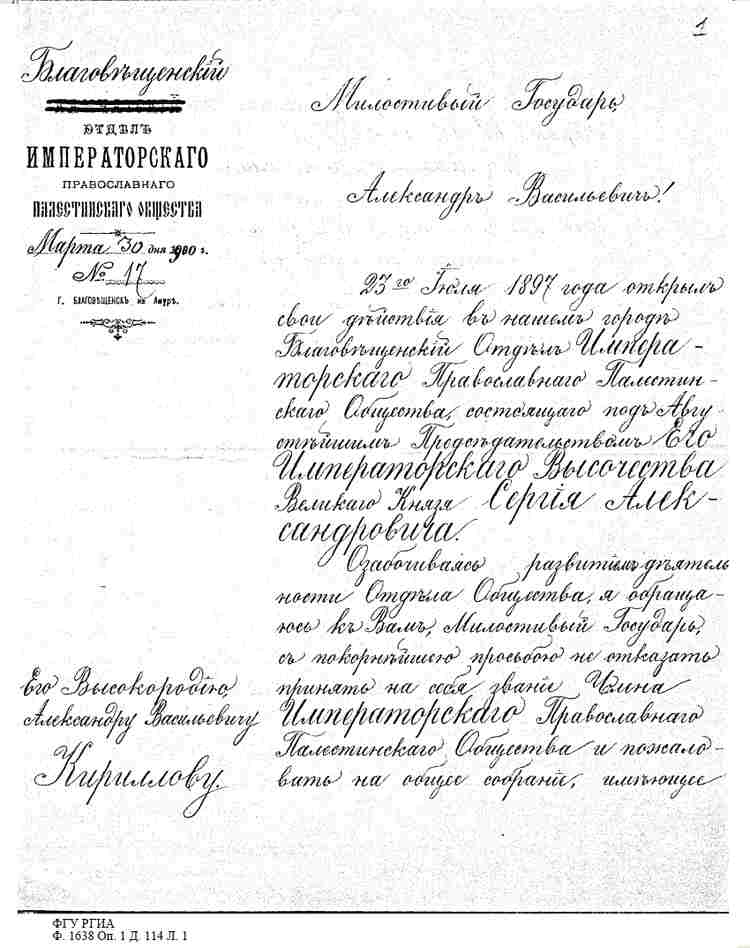 1
Благовѣщенскій
ОТДѢЛЪ
ИМПЕРАТОРСКАГО
ПРАВОСЛАВНАГО
ПАЛЕСТИНСКАГО ОБЩЕСТВА
Марта 30 дня 1900 г.
№ 17
Г. БЛАГОВѢЩЕНСКЪ на Амурѣ.
Милостивый Государь,
Александръ Васильевичъ!
23го Іюля 1897 года открылъ
свои дѣйствія въ нашемъ городѣ
Благовѣщенскій Отдѣлъ Импера-
торскаго Православнаго Палестин-
скаго Общества, состоящаго подъ Авгу-
стѣйшимъ Предсѣдательствомъ Его
Императорскаго Высочества
Великаго Князя Сергія Алек-
сандровича.
Озабочиваясь развитіемъ дѣятель
ности Отдѣла Общества, я обраща-
юсь къ Вамъ, Милостивый Государь,
съ покорнѣйшею просьбою не отказать
принять на себя званіе Члена
Императорскаго Православнаго
Палестинскаго Общества и пожало-
вать на общее собраніе, имѣющее
Его Высокородію
Александру Васильевичу
Кириллову.
ФГУ РГИА
Ф. 1638 Оп. 1 Д. 114 Л. 1